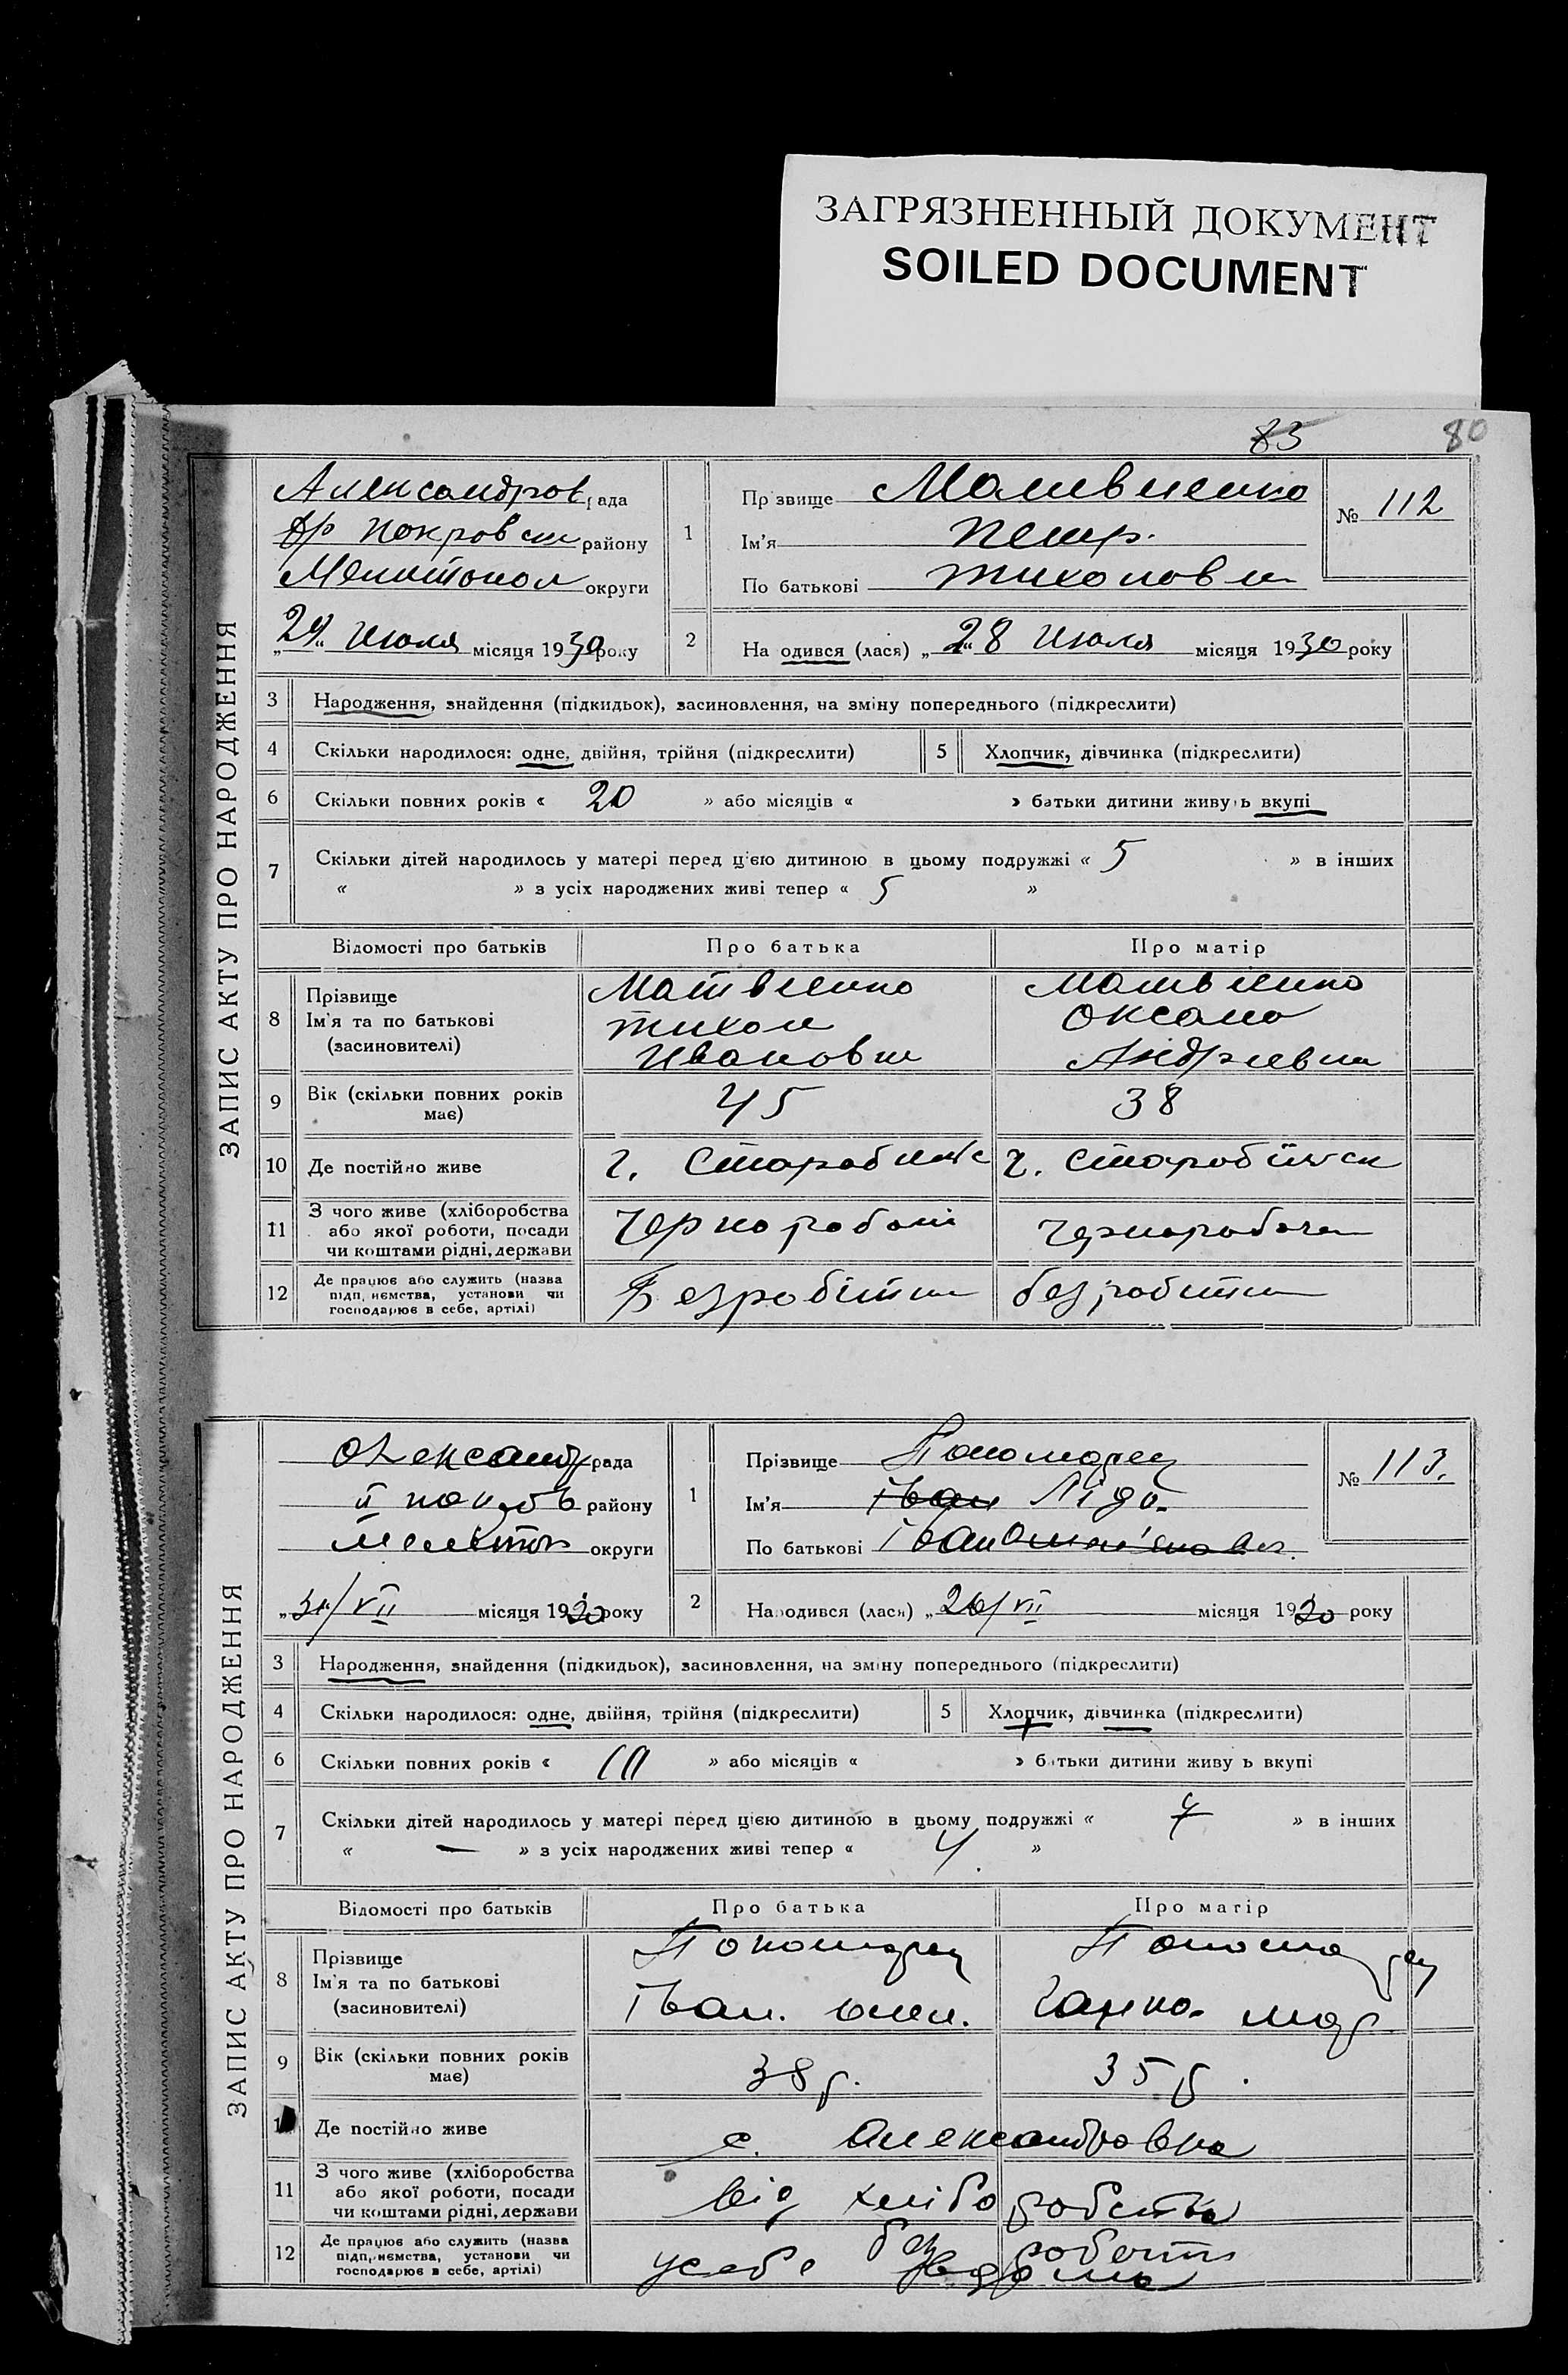 ЗАГРЯЗНЕННЫЙ ДОКУМЕНТ
SOILED DOCUMENT
83 80
ЗАПИС АКТУ ПРО НАРОДЖЕННЯ
Александров рада
покровск района
Мелитопол округи
29 Июля місяця 1930 року
1
Прізвище Матвиенко
Ім'я Петр.
По батькові тихонов
№ 112
2 На одився (лася) „28 Июля місяця 1930 року
3 Народження, знайдення (підкидьок), засиновлення, на зміну попереднього (підкреслити)
4 Скільки народилося: одне, двійня, трійня (підкреслити) 5 Хлопчик, дівчинка (підкреслити)
6 Скільки повних років « 20 » або місяців « » батьки дитини живуть вкупі
7 Скільки дітей народилось у матері перед цією дитиною в цьому подружжі « 5 » в інших
« » з усіх народжених живі тепер « 5 »
Відомості про батьків Про батька Про матір
8 Прізвище
Ім'я та по батькові
(засиновителі)
Матвиенко
тихон
Иванович
Матвиенко
Оксана
Андреевна
9 Вік (скільки повних років має) 45 38
10 Де постійно живе г. Старобильс г. Старобильск
11 З чого живе (хліборобства
або якої роботи, посади
чи коштами рідні, держави
чернорабочі чернорабоча
12 Де працює або служить (назва
підприємства, установи чи
господарює в себе, артілі)
Безробітни безробитни
ЗАПИС АКТУ ПРО НАРОДЖЕННЯ
Олександр рада
району
Меліт округи
місяця 1930 року
1
Прізвище Пономарец
Ім'я Іван Ліда
По батькові Іван
№ 113.
2 Народився (лася) „26/VII місяця 1930 року
3 Народження, знайдення (підкидьок), засиновлення, на зміну попереднього (підкреслити)
4 Скільки народилося: одне, двійня, трійня (підкреслити) 5 Хлопчик, дівчинка (підкреслити)
6 Скільки повних років « » або місяців « » батьки дитини живу ь вкупі
7 Скільки дітей народилось у матері перед цією дитиною в цьому подружжі « » в інших
« — » з усіх народжених живі тепер « 4 »
Відомості про батьків Про батька Про матір
8 Прізвище
Ім'я та по батькові
(засиновителі)
Пономарец
Іван.
Пономарец
Ганна
9 Вік (скільки повних років має) 38 р. 35 р.
10 Де постійно живе с. Александровка
11 З чого живе (хліборобства
або якої роботи, посади
чи коштами рідні, держави
від хліборобства
12 Де працює або служить (назва
підприємства, установи чи
господарює в себе, артілі)
усебе